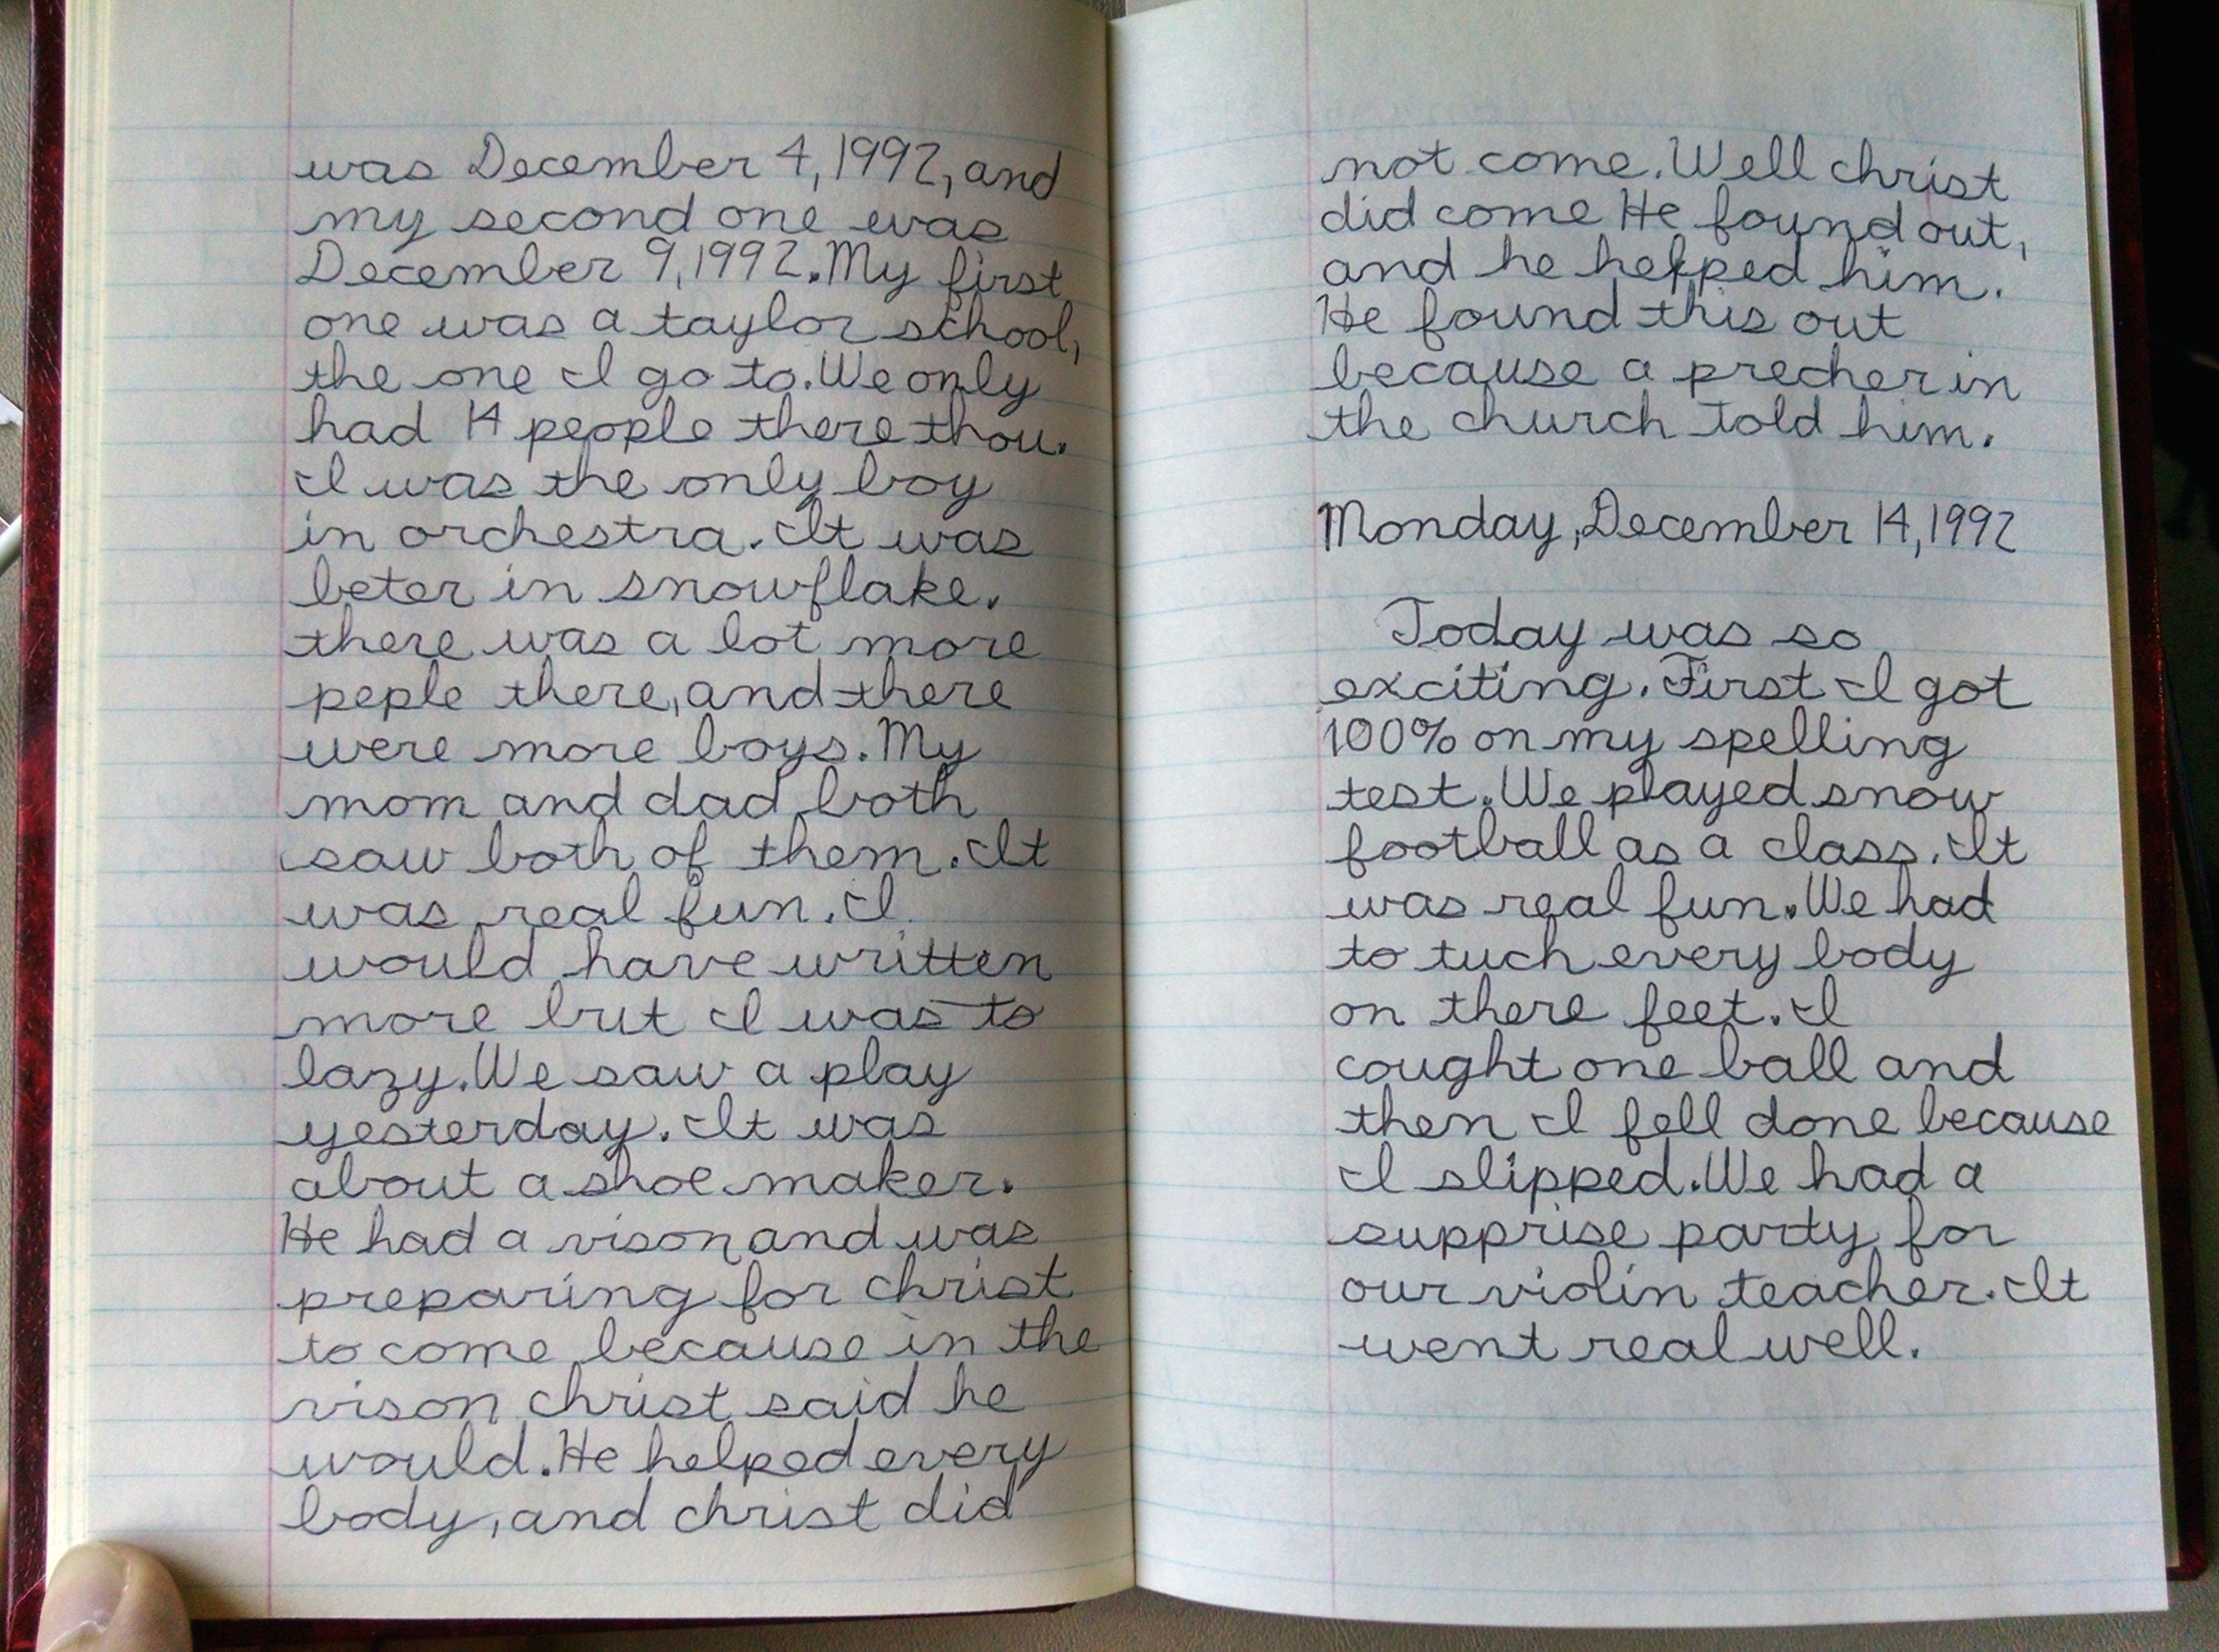 was December 4, 1992, and
my second one was
December 9, 1992. My first
one was a taylor school,
the one I go to. We only
had 14 people there thou.
I was the only boy
in orchestra. It was
beter in snowflake.
there was a lot more
peple there, and there
were more boys. My
mom and dad both
saw both of them. It
was real fun. I
would have written
more but I was to
lazy. We saw a play
yesterday. It was
about a shoe maker.
He had a vison and was
preparing for christ
to come because in the
vison christ said he
would. He helped every
body, and christ did
not come. Well christ
did come He found out,
and he helpped him.
He found this out
because a precher in
the church told him.
Monday, December 14, 1992
Today was so
exciting. First I got
100% on my spelling
test. We played snow
football as a class. It
was real fun. We had
to tuch every body
on there feet. I
cought one ball and
then I fell done because
I slipped. We had a
supprise party for
our violin teacher. It
went real well.